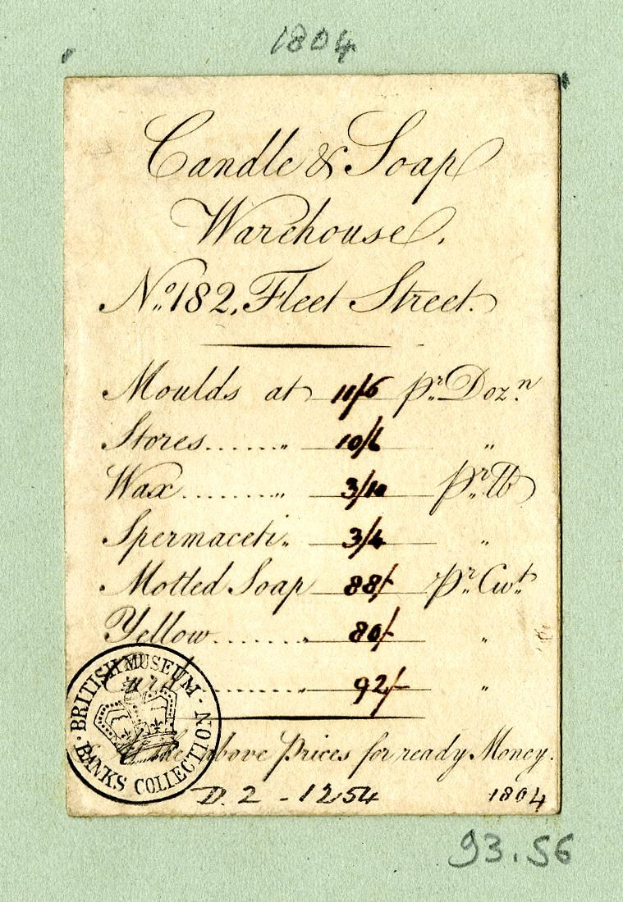 1804
Candle & Soap
Warehouse.
No. 182, Fleet Street.
Moulds at 11/6 pr. Dozn.
Stores....... „ 10/6 „
Wax......... „ 3/10 pr. lb
Spermaceti. 3/4 „
Motled Soap 88/- pr. Cwt.
Yellow....... „ 80/- „
Curd ......... 92/- „
The above Prices for ready Money.
BRITISH MUSEUM
BANKS COLLECTION
D. 2 - 1254 1804
93.56